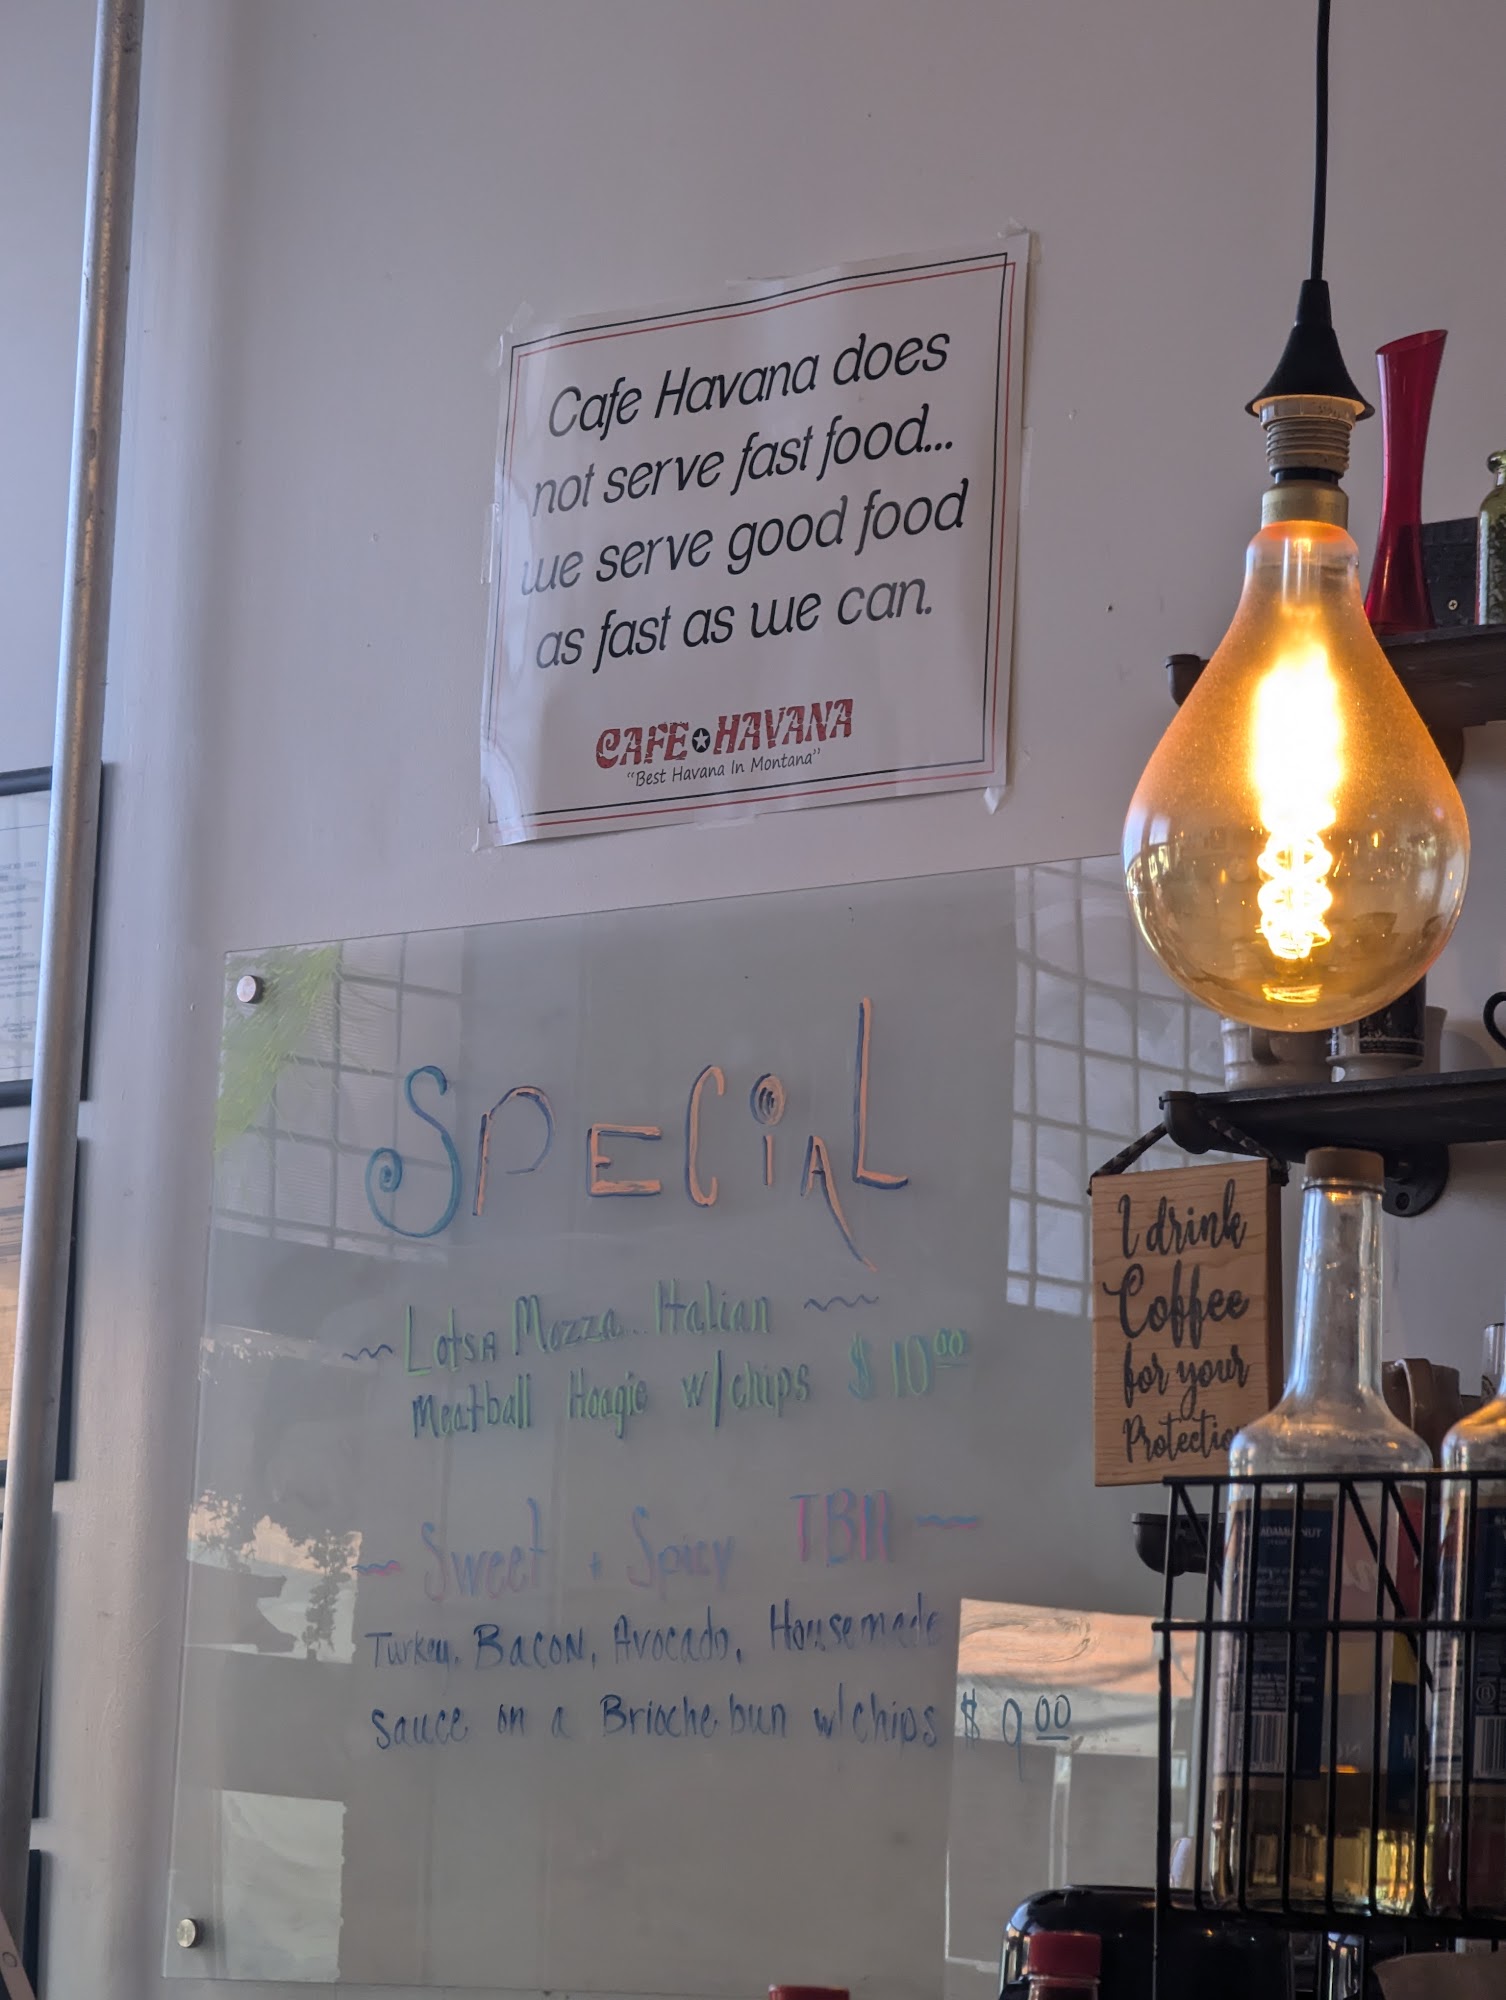 Cafe Havana does
not serve fast food...
we serve good food
as fast as we can.
CAFE HAVANA
"Best Havana In Montana"
SPECiAL
~ Lotsa Mozza.. Italian ~
Meatball Hoagie w/chips $10.00
~ Sweet + Spicy TBA ~
Turkey, Bacon, Avocado, Housemade
sauce on a Brioche bun w/chips $9.00
I drink
Coffee
for your